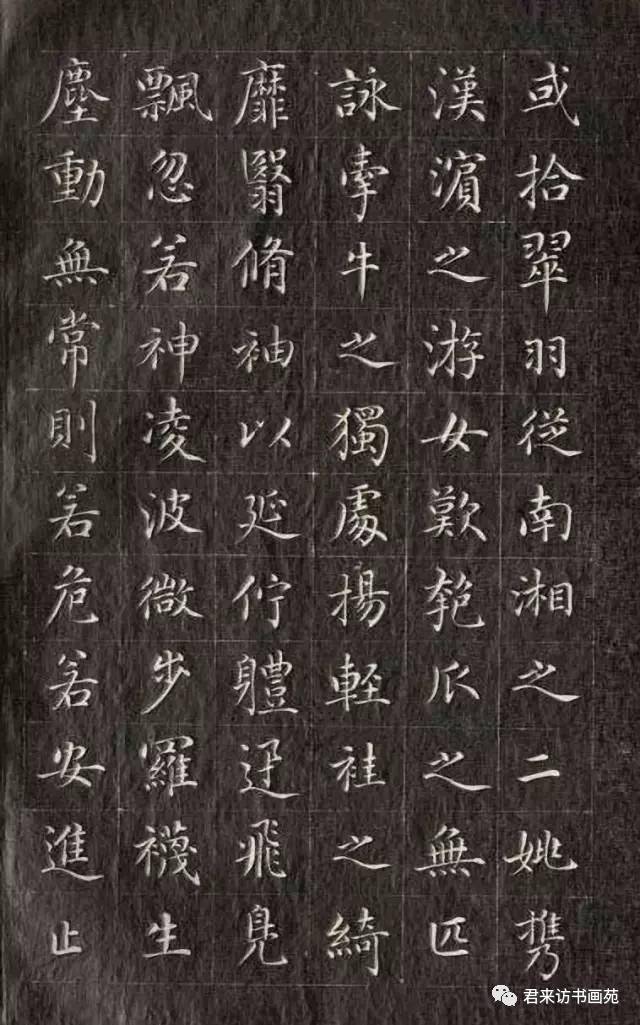 或拾翠羽從南湘之二姚攜
漢濱之游女歎匏瓜之無匹
詠牽牛之獨處揚輕袿之綺
靡翳脩袖以延佇體迅飛鳧
飄忽若神凌波微步羅襪生
塵動無常則若危若安進止
君来访书画苑